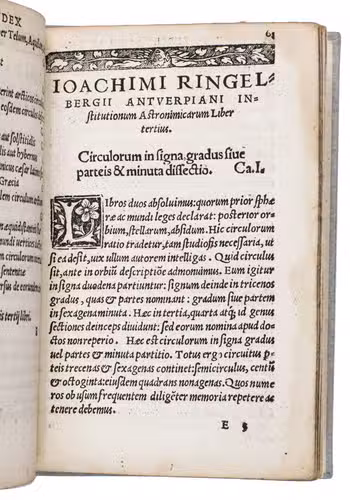 NDEX
er Telum, Aquilam
nicus cæsar latinis
Græcia
is tertij libri.
61
IOACHIMI RINGEL-
BERGII ANTVERPIANI IN-
stitutionum Astronimicarum Liber
tertius.
Circulorum in signa, gradus siue
parteis & minuta dissectio. Ca. I.
LIbros duos absoluimus: quorum prior sphæ
ræ ac mundi leges declarat: posterior or-
bium, stellarum, absidum. Hic circulorum
ratio tradetur, tam studiosis necessaria, ut
si ea desit, uix ullum autorem intelligas. Quid circulus
sit, ante in orbiū descriptiōe admonuimus. Eum igitur
in signa duodena partiuntur: signum deinde in tricenos
gradus, quas & partes nominant: gradum siue partem
in sexagenaminuta. Hæc in tertia, quarta atq; id genus
sectiones deinceps diuidunt: sed eorum nomina apud do-
ctos non reperio. Hæc est circulorum in signa gradus
uel partes & minuta partitio. Totus ergo circuitus p
teis trecenas & sexagenas continet: semicirculus, centū
& octogintá: eiusdem quadrans nonagenas. Quos nume
ros ob usum frequentem diligēter memoria repetere ac
tenere debemus.
E 5